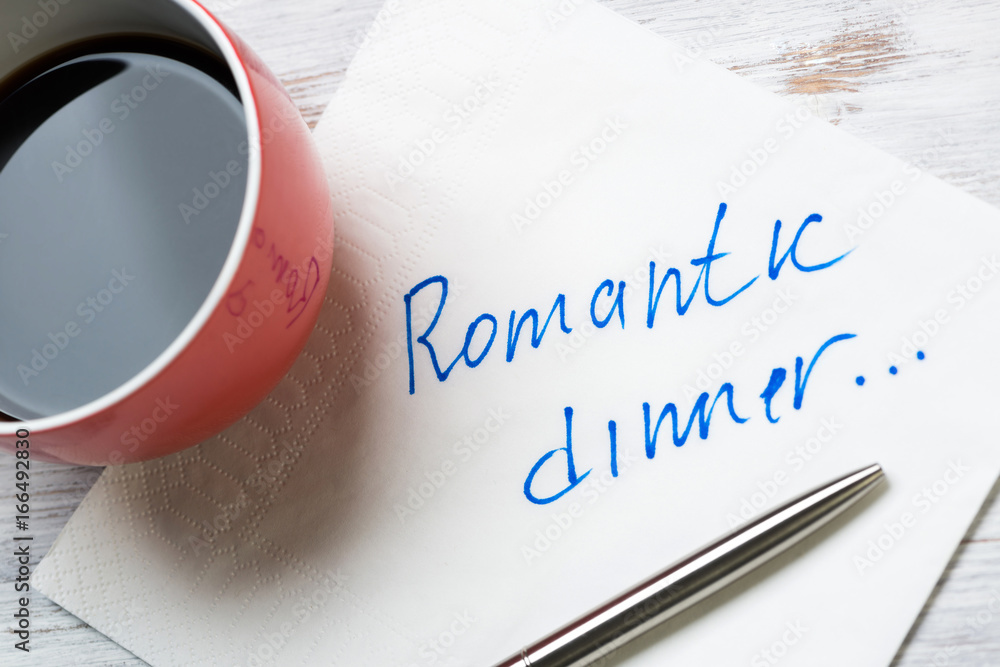 Romantic
dinner...
Adobe Stock | #166492830